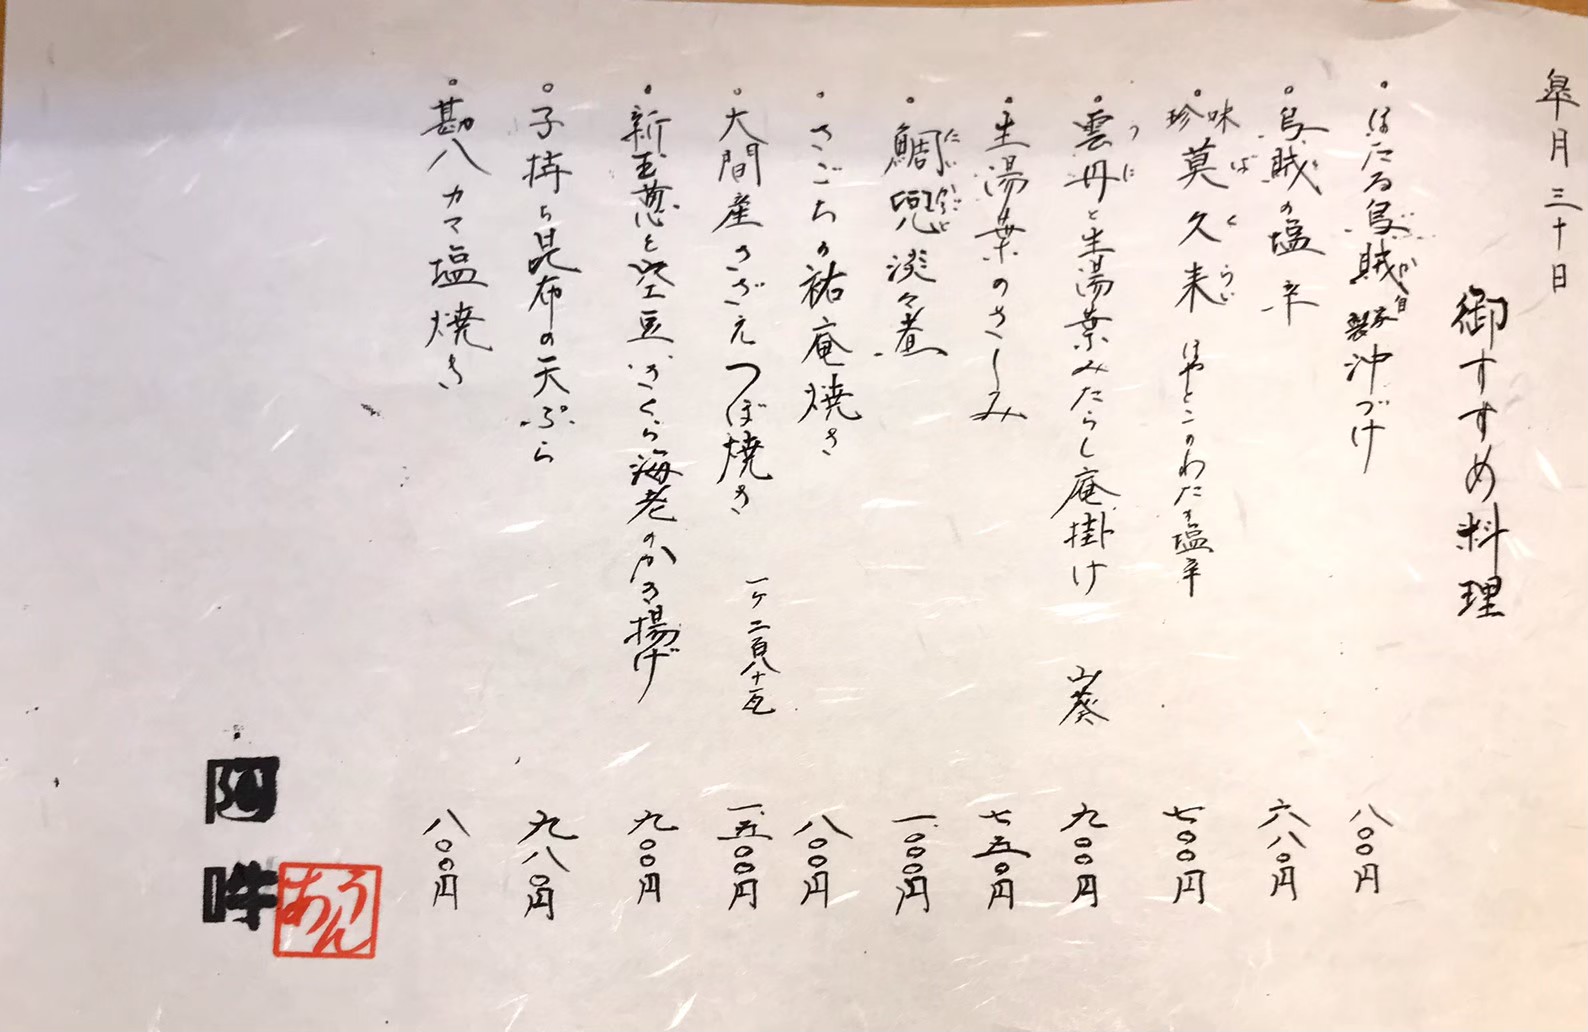 皐月三十日
御すすめ料理
・ほたる烏賊自家製沖づけ 八〇〇円
・烏賊の塩辛 六八〇円
・珍味莫久来 ほやとこのわたの塩辛 七〇〇円
・雲丹と生湯葉みたらし庵掛け 山葵 九〇〇円
・生湯葉のさしみ 七五〇円
・鯛兜淡々煮 一、〇〇〇円
・さごちの祐庵焼き 八〇〇円
・大間産さざえつぼ焼き 一ケ二百八十瓦 一、五〇〇円
・新玉葱と空豆、さくら海老のかき揚げ 九〇〇円
・子持ち昆布の天ぷら 九八〇円
・勘八カマ塩焼き 八〇〇円
阿吽
あうん